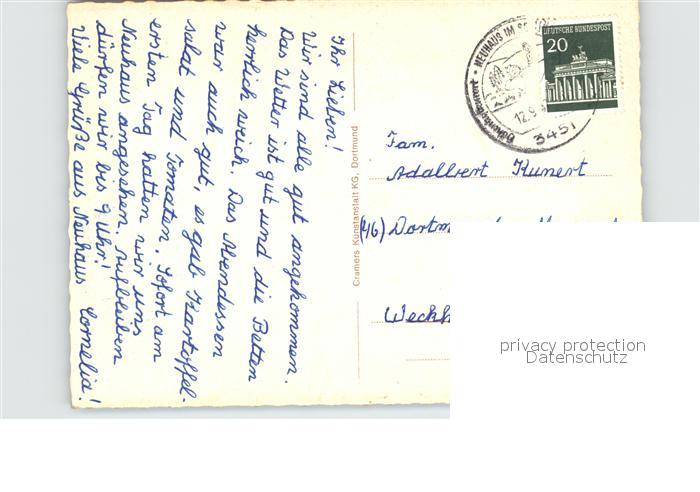 Ihr Lieben!
Wir sind alle gut angekommen.
Das Wetter ist gut und die Betten
herrlich weich. Das Abendessen
war auch gut, es gab Kartoffel-
salat und Tomaten. Sofort am
ersten Tag hatten wir uns
Neuhaus angesehen. Aufbleiben
dürfen wir bis 9 Uhr!
Viele Grüße aus Neuhaus Cornelia!
Cramers Kunstanstalt KG, Dortmund
NEUHAUS IM
12.9.
3451
DEUTSCHE BUNDESPOST
20
Fam.
Adalbert Kunert
(46) Dortm
Weckh
privacy protection
Datenschutz